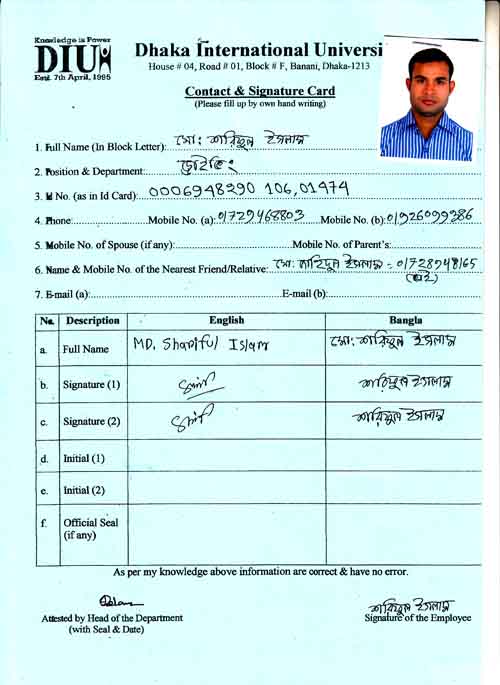 Knowledge is Power
DIU
Est. 7th April, 1995
Dhaka International Universi
House # 04, Road # 01, Block # F, Banani, Dhaka-1213
Contact & Signature Card
(Please fill up by own hand writing)
1. Full Name (In Block Letter): মো: শরিফুল ইসলাম
2. Position & Department:
3. Id No. (as in Id Card): 0006948290 106,01474
4. Phone: Mobile No. (a): 01729468803 Mobile No. (b): 01926099386
5. Mobile No. of Spouse (if any): Mobile No. of Parent's:
6. Name & Mobile No. of the Nearest Friend/Relative: মো: ইসলাম - 01728948165
(ভাই)
7. E-mail (a): E-mail (b):
No. Description English Bangla
a. Full Name MD. Shariful Islam মো: শরিফুল ইসলাম
b. Signature (1) শরিফুল ইসলাম
c. Signature (2) শরিফুল ইসলাম
d. Initial (1)
e. Initial (2)
f. Official Seal
(if any)
As per my knowledge above information are correct & have no error.
শরিফুল ইসলাম
Attested by Head of the Department Signature of the Employee
(with Seal & Date)